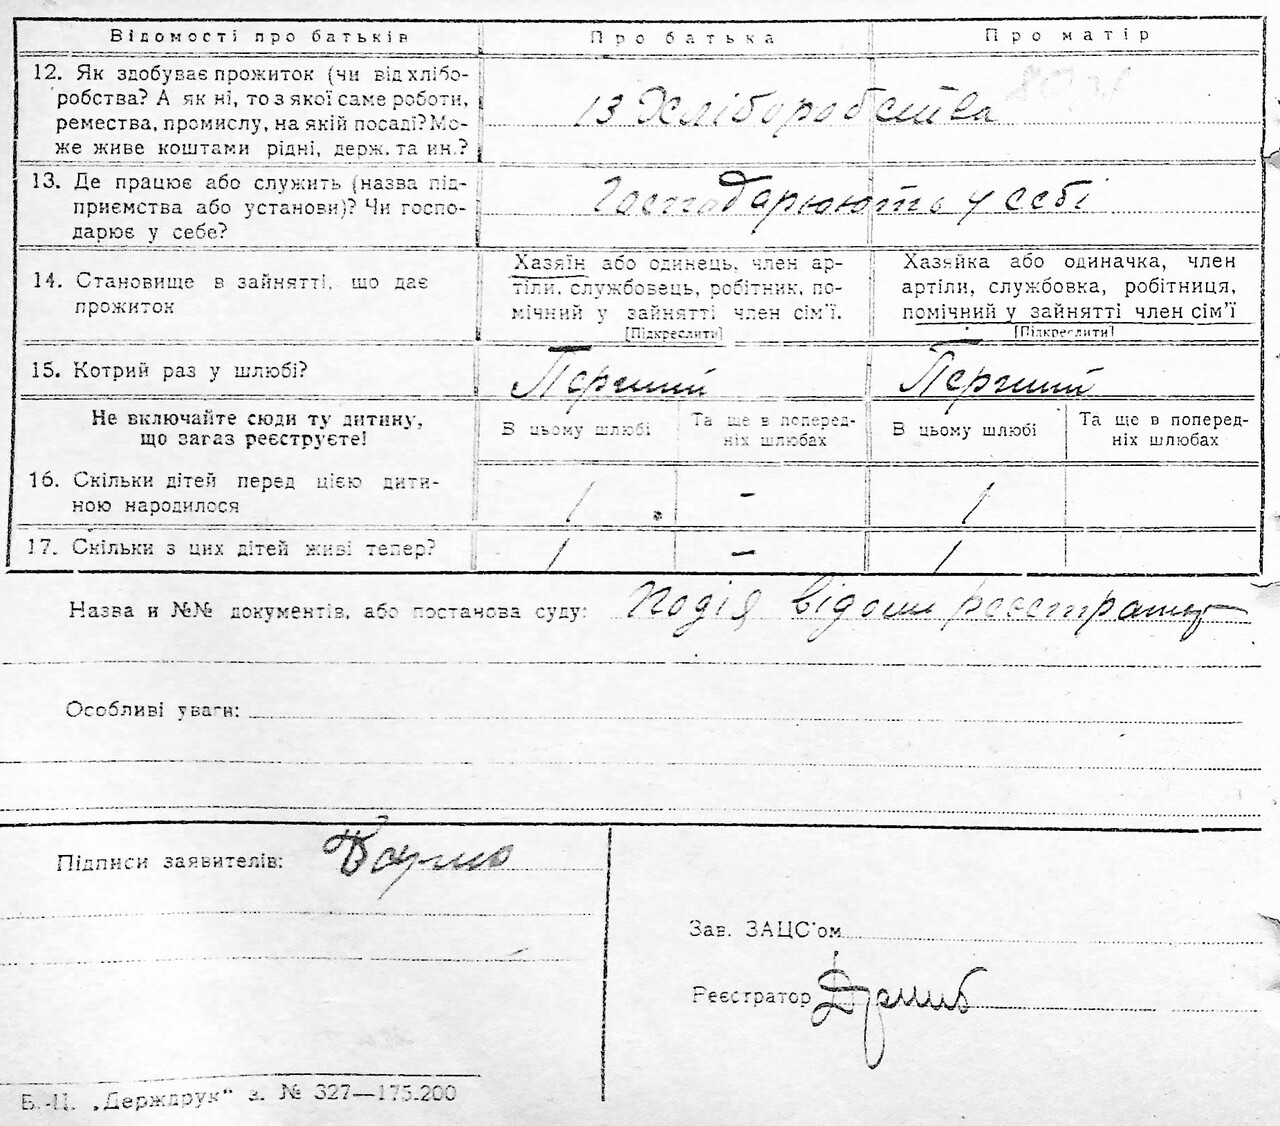 Відомості про батьків Про батька Про матір
12. Як здобуває прожиток (чи від хлібо-
робства? А як ні, то з якої саме роботи,
ремества, промислу, на якій посаді? Мо-
же живе коштами рідні, держ. та ин.?
Із Хліборобства
13. Де працює або служить (назва під-
приємства або установи)? Чи госпо-
дарює у себе?
Господарюють у себі
14. Становище в зайнятті, що дає
прожиток
Хазяїн або одинець, член ар-
тіли, службовець, робітник, по-
мічний у зайнятті член сім'ї.
[Підкреслити]
Хазяйка або одиначка, член
артіли, службовка, робітниця,
помічний у зайнятті член сім'ї
[Підкреслити]
15. Котрий раз у шлюбі? Перший Перший
Не включайте сюди ту дитину,
що зараз реєструєте!
В цьому шлюбі
Та ще в поперед-
ніх шлюбах
В цьому шлюбі
Та ще в поперед-
ніх шлюбах
16. Скільки дітей перед цією дити-
ною народилося
1 - 1
17. Скільки з цих дітей живі тепер? 1 - 1
Назва и №№ документів, або постанова суду: Подія відома
Особливі уваги:
Підписи заявителів:
Зав. ЗАЦС'ом
Реєстратор
Б.-Ц. „Держдрук" з. № 327—175.200